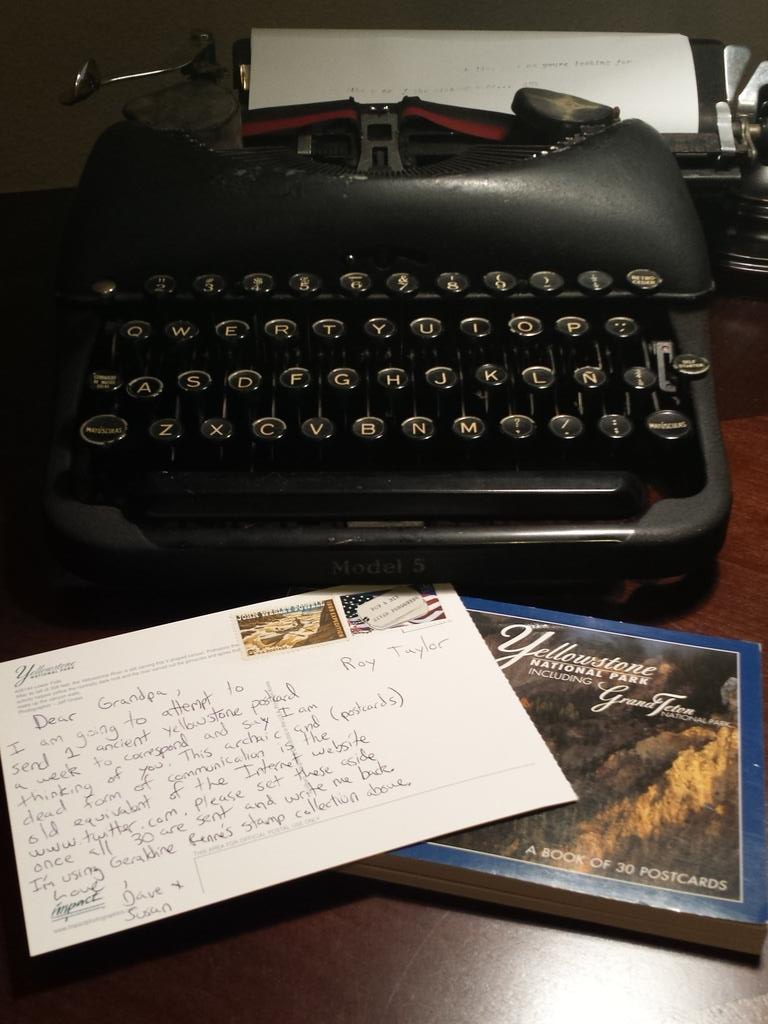 youre looking for
2 3 4 5 6 7 8 9
RETRO-
CESO
Q W E R T Y U I O P
A S D F G H J K L Ñ
SELF
STARTER
MAYÚSCULAS Z X C V B N M MAYÚSCULAS
Model 5
JOHN WESLEY POWELL
Yellowstone
NATIONAL PARK
Roy Taylor
Dear Grandpa,
I am going to attempt to
send 1 ancient yellowstone postcard
a week to correspond and say I am
thinking of you. This archaic and (postcards)
dead form of communication is the
old equivalent of the Internet website
www.twitter.com. please set these aside
once all 30 are sent and write me back.
I'm using Geraldine Renne's stamp collection above.
THIS AREA FOR OFFICIAL POSTAL USE ONLY
Love,
impact
Dave &
Susan
Yellowstone
NATIONAL PARK
INCLUDING
Grand Teton
NATIONAL PARK
A BOOK OF 30 POSTCARDS